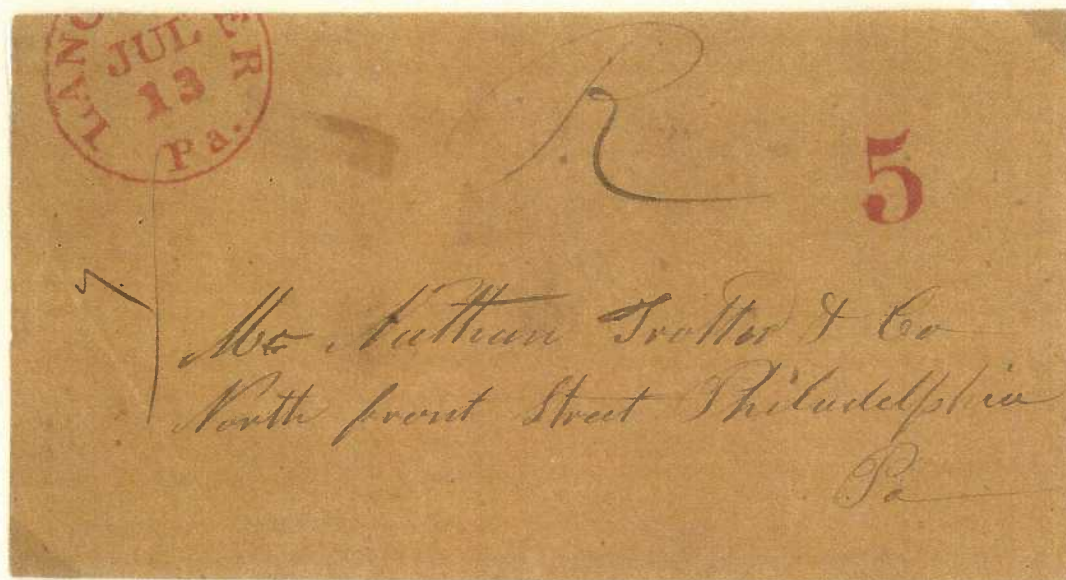 LANC ER
JUL
13
Pa.
R
5
Mr Nathan Trotter & Co
North front Street Philadelphia
Pa